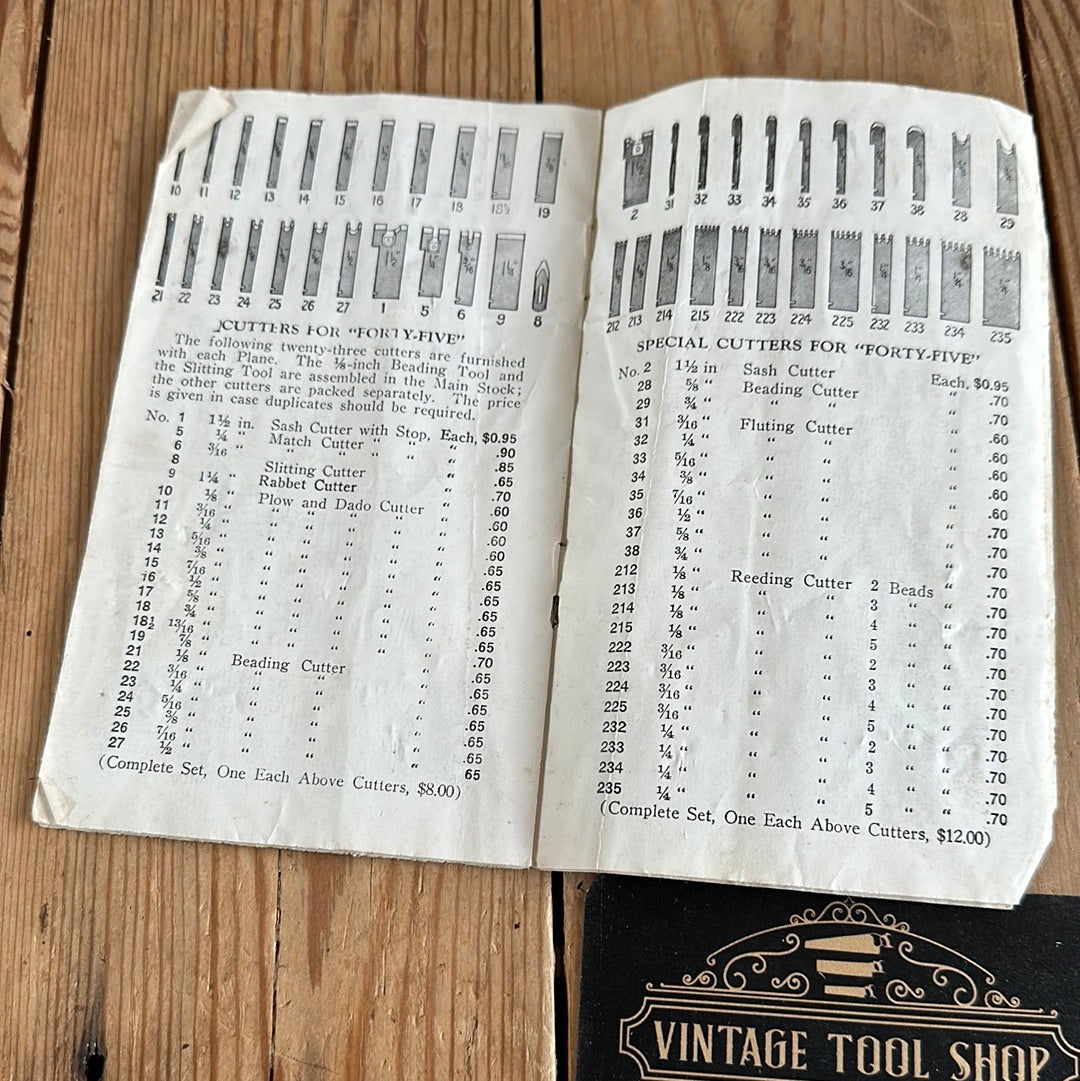 10 11 12 13 14 15 16 17 18 18½ 19
21 22 23 24 25 26 27 1 5 6 9 8
CUTTERS FOR "FORTY-FIVE"
The following twenty-three cutters are furnished
with each Plane. The ⅛-inch Beading Tool and
the Slitting Tool are assembled in the Main Stock;
the other cutters are packed separately. The price
is given in case duplicates should be required.
No. 1 1½ in. Sash Cutter with Stop, Each, $0.95
5 ¼ " Match Cutter " " " .90
6 3/16 " " " " " " .85
8 Slitting Cutter " .65
9 1¼ " Rabbet Cutter " .70
10 ⅛ " Plow and Dado Cutter " .60
11 3/16 " " " " " " .60
12 ¼ " " " " " " .60
13 5/16 " " " " " " .60
14 ⅜ " " " " " " .65
15 7/16 " " " " " " .65
16 ½ " " " " " " .65
17 ⅝ " " " " " " .65
18 ¾ " " " " " " .65
18½ 13/16 " " " " " " .65
19 ⅞ " " " " " " .70
21 ⅛ " Beading Cutter " .65
22 3/16 " " " " .65
23 ¼ " " " " .65
24 5/16 " " " " .65
25 ⅜ " " " " .65
26 7/16 " " " " .65
27 ½ " " " " 65
(Complete Set, One Each Above Cutters, $8.00)
2 31 32 33 34 35 36 37 38 28 29
212 213 214 215 222 223 224 225 232 233 234 235
SPECIAL CUTTERS FOR "FORTY-FIVE"
No. 2 1½ in Sash Cutter Each, $0.95
28 ⅝ " Beading Cutter " .70
29 ¾ " " " " .70
31 3/16 " Fluting Cutter " .60
32 ¼ " " " " .60
33 5/16 " " " " .60
34 ⅜ " " " " .60
35 7/16 " " " " .60
36 ½ " " " " .70
37 ⅝ " " " " .70
38 ¾ " " " " .70
212 ⅛ " Reeding Cutter 2 Beads " .70
213 ⅛ " " " 3 " " .70
214 ⅛ " " " 4 " " .70
215 ⅛ " " " 5 " " .70
222 3/16 " " " 2 " " .70
223 3/16 " " " 3 " " .70
224 3/16 " " " 4 " " .70
225 3/16 " " " 5 " " .70
232 ¼ " " " 2 " " .70
233 ¼ " " " 3 " " .70
234 ¼ " " " 4 " " .70
235 ¼ " " " 5 " " .70
(Complete Set, One Each Above Cutters, $12.00)
VINTAGE TOOL SHOP